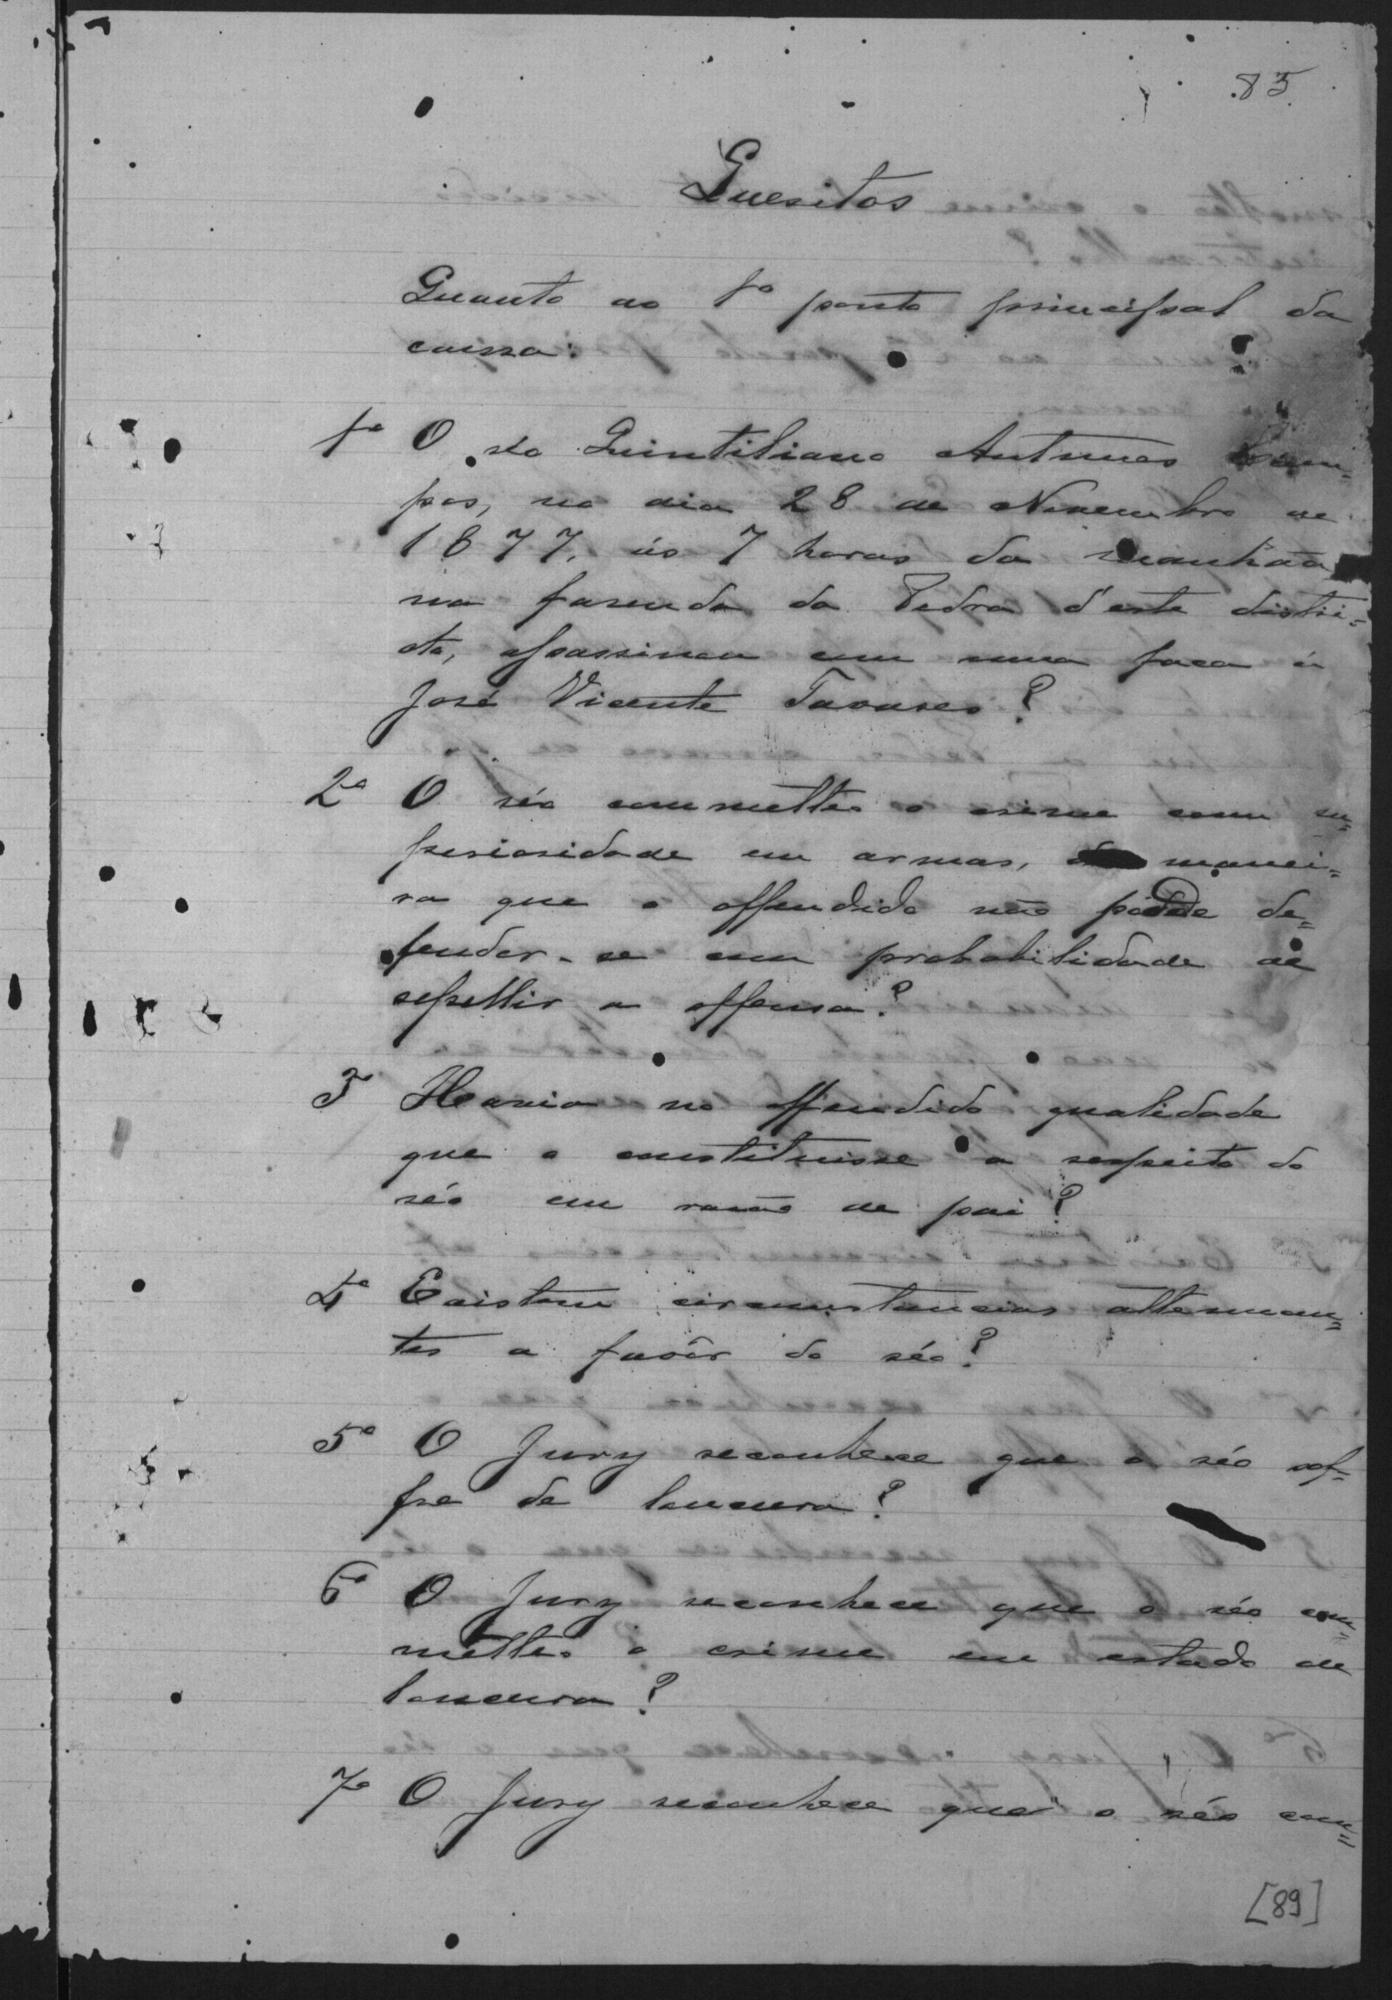 85
Quesitos
Quanto ao 1º ponto principal da
causa:
1º O réo Quintiliano Antunes Cam=
pos, no dia 28 de Novembro de
1877, ás 7 horas da manhãa
na fasenda da Pedra d'este distri=
cto, assassinou com uma faca á
José Vicente Tavares?
2º O réo commetteo o crime com su=
perioridade em armas, de manei=
ra que o offendido não podéde de=
fender-se com probabilidade de
repellir a offensa?
3º Havia no offendido qualidade
que o constituisse a respeito do
réo em rasão de pai?
4º Existem circumstancias attenuan=
tes a favôr do réo?
5º O Jury reconhece que o réo sof=
fre de loucura?
6º O Jury reconhece que o réo com=
metteo o crime em estado de
loucura?
7º O Jury reconhece que o réo com=
[89]